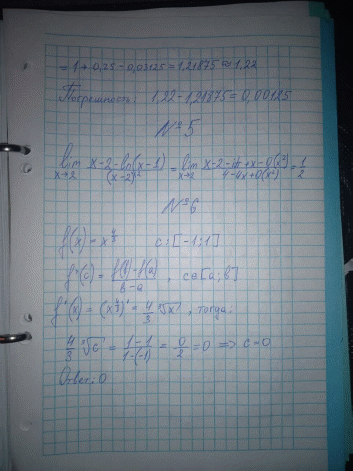 = 1 + 0,25 - 0,03125 = 1,21875 ≈ 1,22
Погрешность: 1,22 - 1,21875 = 0,00125
№5
lim x→2 (x-2-ln(x-1))/(x-2)² = lim x→2 /(4-4x+0(x²)) = 1/2
№6
f(x) = x^(4/3) c: [-1;1]
f'(c) = (f(b)-f(a))/(b-a), c∈[a;b]
f'(x) = (x^(4/3))' = 4/3 ³√x, тогда:
4/3 ³√c = (1-1)/(1-(-1)) = 0/2 = 0 => c=0
Ответ: 0